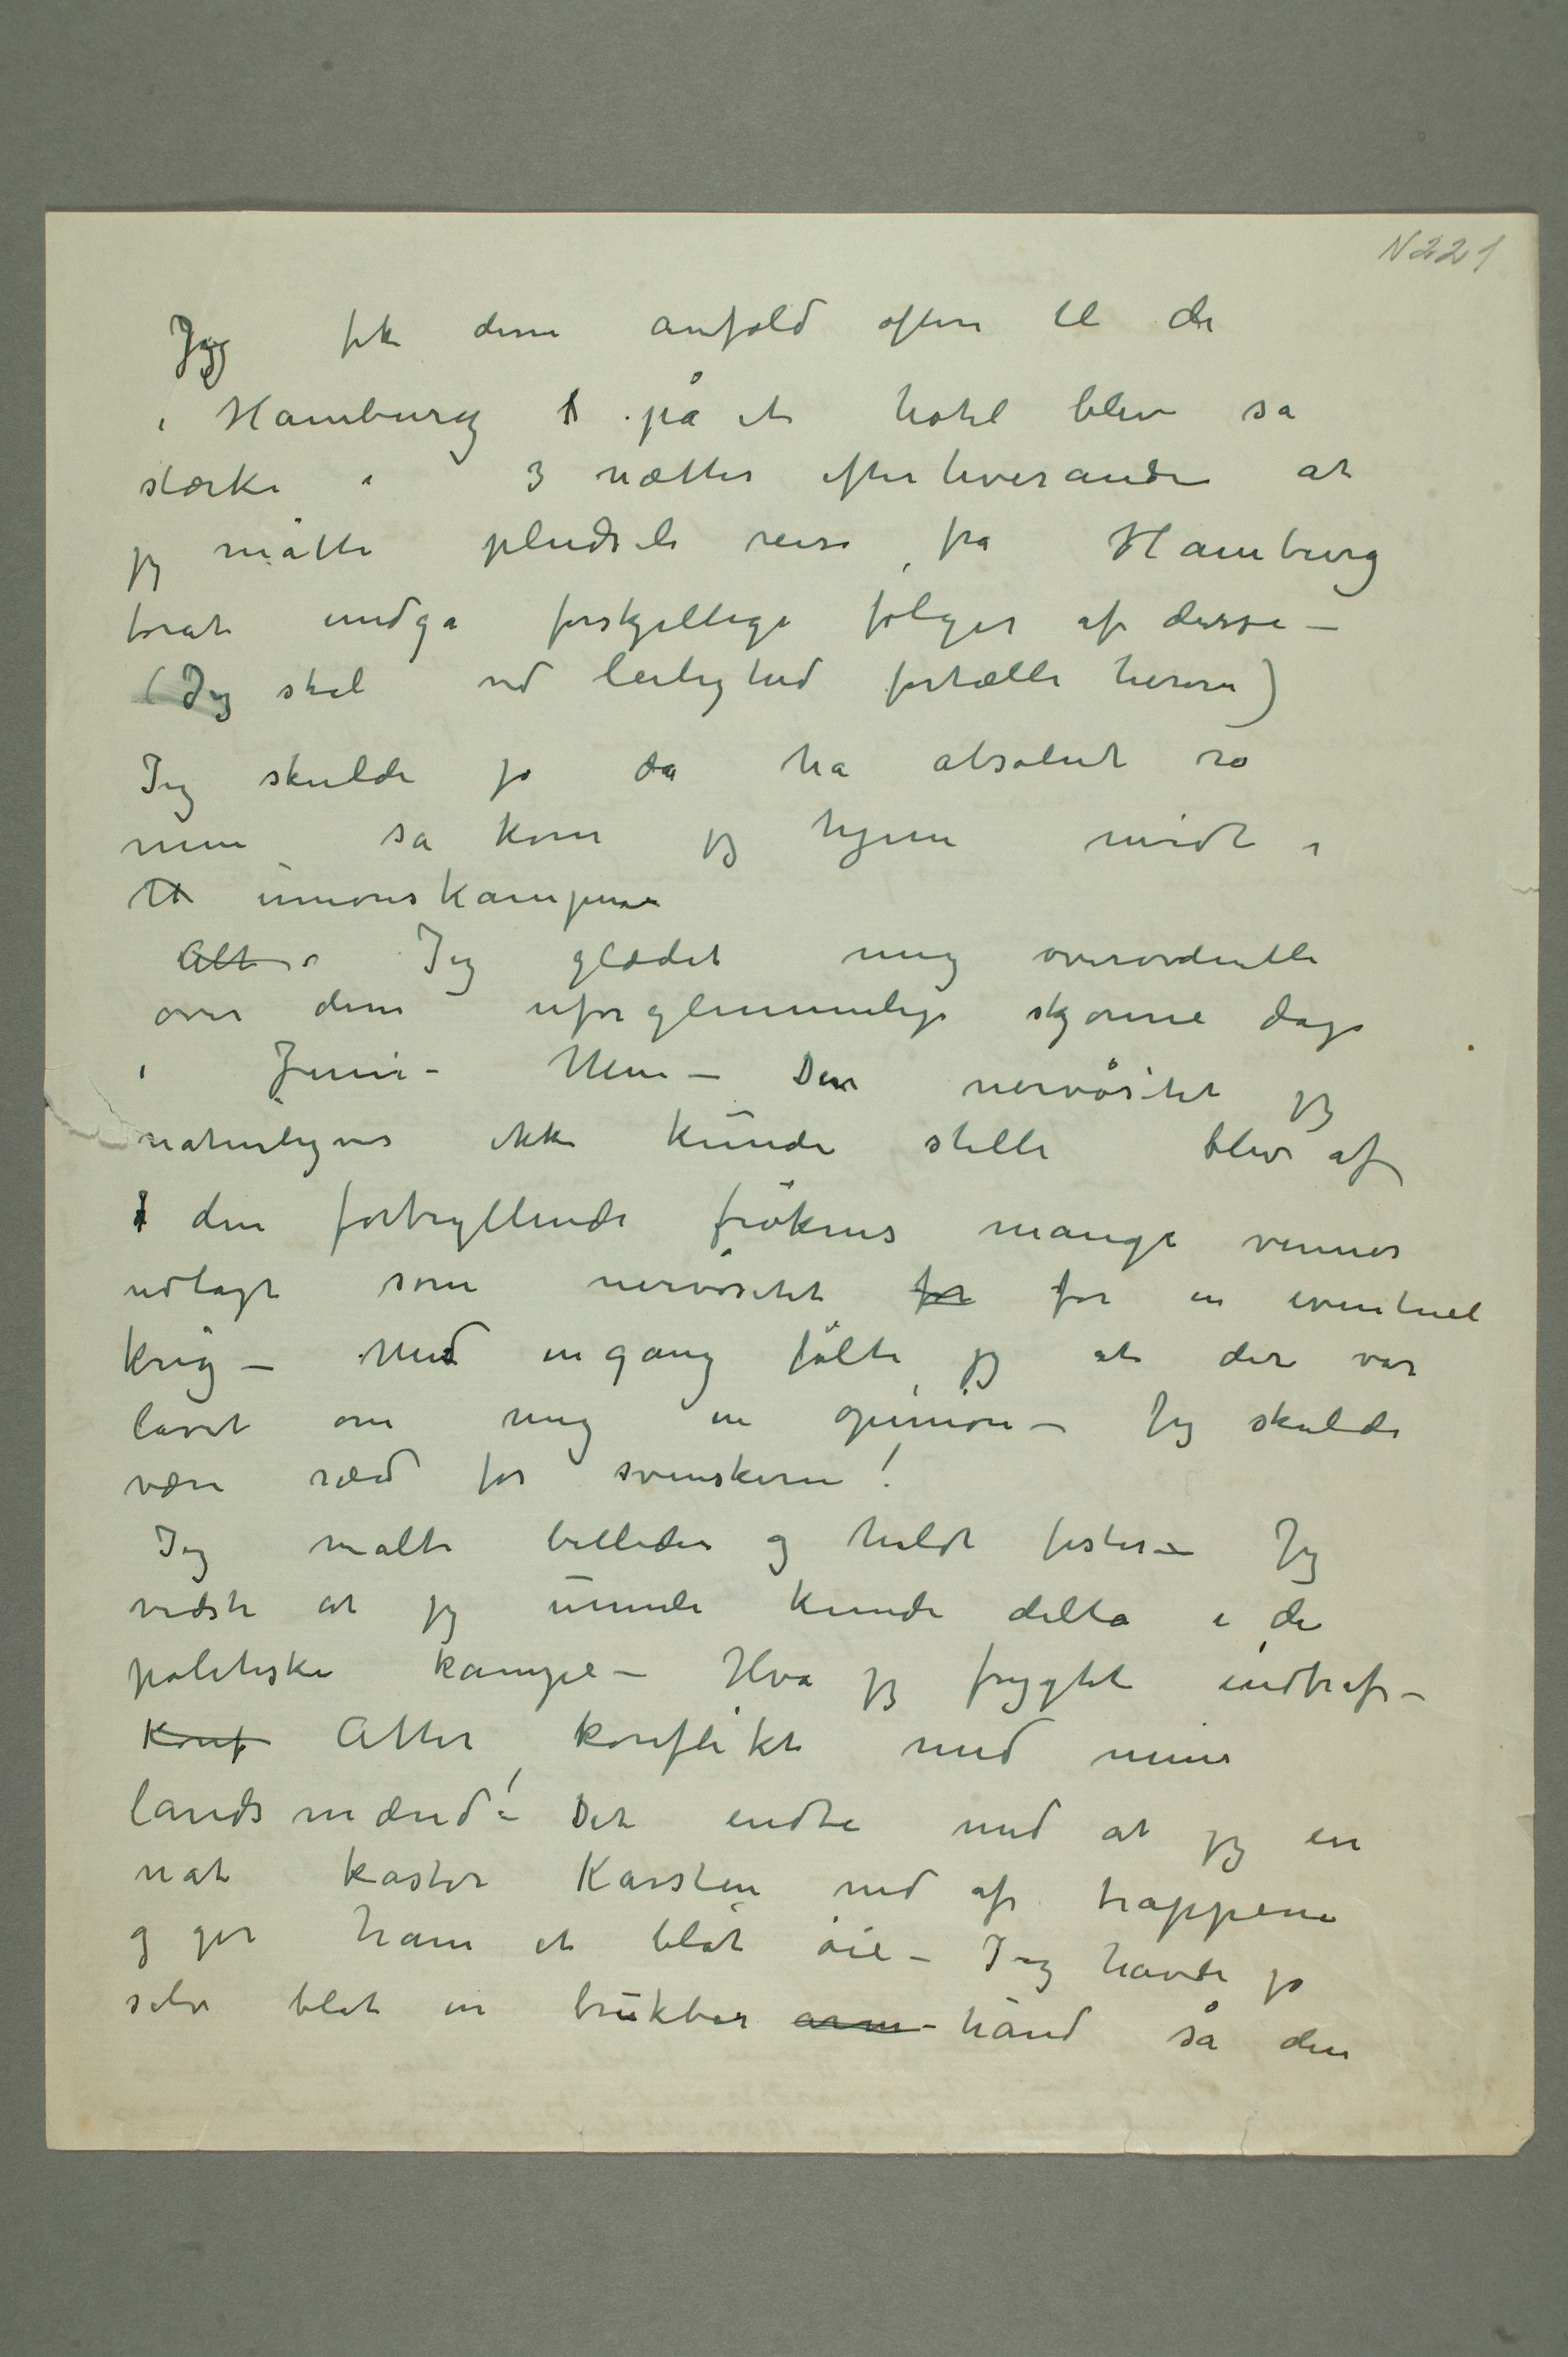 N 221
Jeg fik disse anfald oftere til de
i Hamburg på et hotel blev så
stærke i 3 nætter efterhverandre at
jeg måtte pludseli reise fra Hamburg
forat undgå forskjellige følger af disse –
(Jeg skal ved leilighed fortælle herom)
Jeg skulde jo da ha absolut ro
men så kom jeg hjem midt i
unionskampene
Alt Jeg glædet mig overordentli
over dine uforglemmelige skjønne dage
i Juni – Men – Den nervøsitet jeg
naturligvis ikke kunde stille blev af
den fortryllende frökens mange venner
udlagt som nervøsitet for for en eventuel
krig – Med engang følte jeg at der var
lavet om mig en opinion – Jeg skulde
være ræd for svenskerne!
Jeg malte billeder og holdt fester – Jeg
vidste at jeg umuli kunde delta i de
politiske kampe – Hva jeg frygtet indtraf –
Konf Atter konflikt med mine
landsmænd! – Det endte med at jeg en
nat kaster Karsten ned af trappene
og gir ham et blåt øie – Jeg havde jo
selv blot en brukbar arm – hånd så den